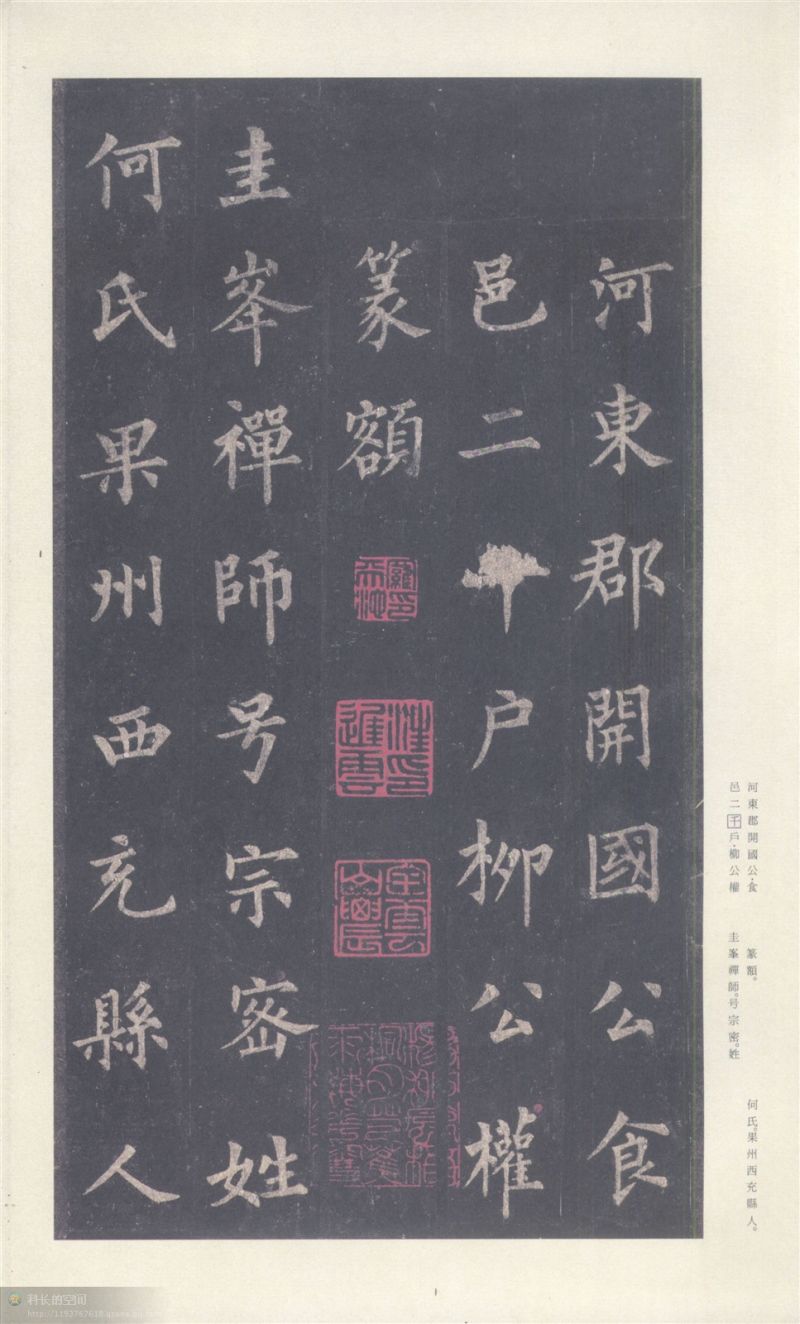 河東郡開國公食
邑二千戶柳公權
篆額
圭峯禪師号宗密姓
何氏果州西充縣人
河東郡開國公·食
邑二千戶·柳公權
篆額。
圭峯禪師。号宗密。姓
何氏。果州西充縣人。
科长的空间